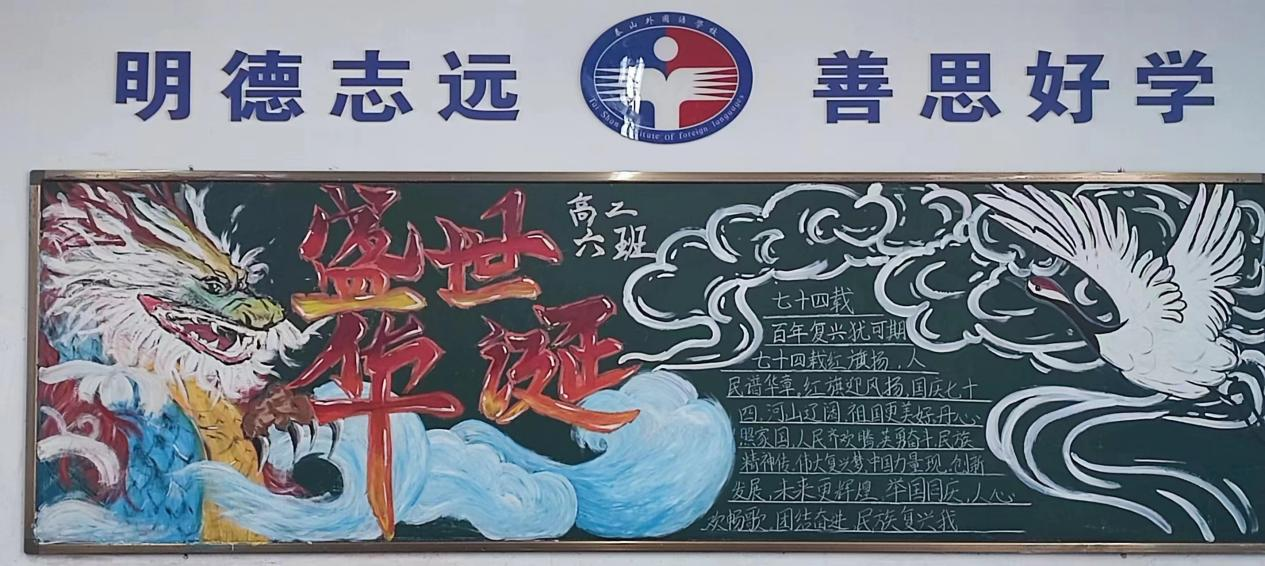 明德志远
泰山外国语学校
Tai Shan
of foreign languages
善思好学
盛世
华诞
高二
六班
七十四载
百年复兴犹可期
七十四载红旗扬，人
民谱华章，红旗迎风扬，国庆七十
四，河山辽阔，祖国更美好，丹心
照家国，人民齐欢腾，英勇奋斗民族
精神传，伟大复兴梦，中国力量现，创新
发展，未来更辉煌，举国同庆，人心
欢畅歌，团结奋进，民族复兴我